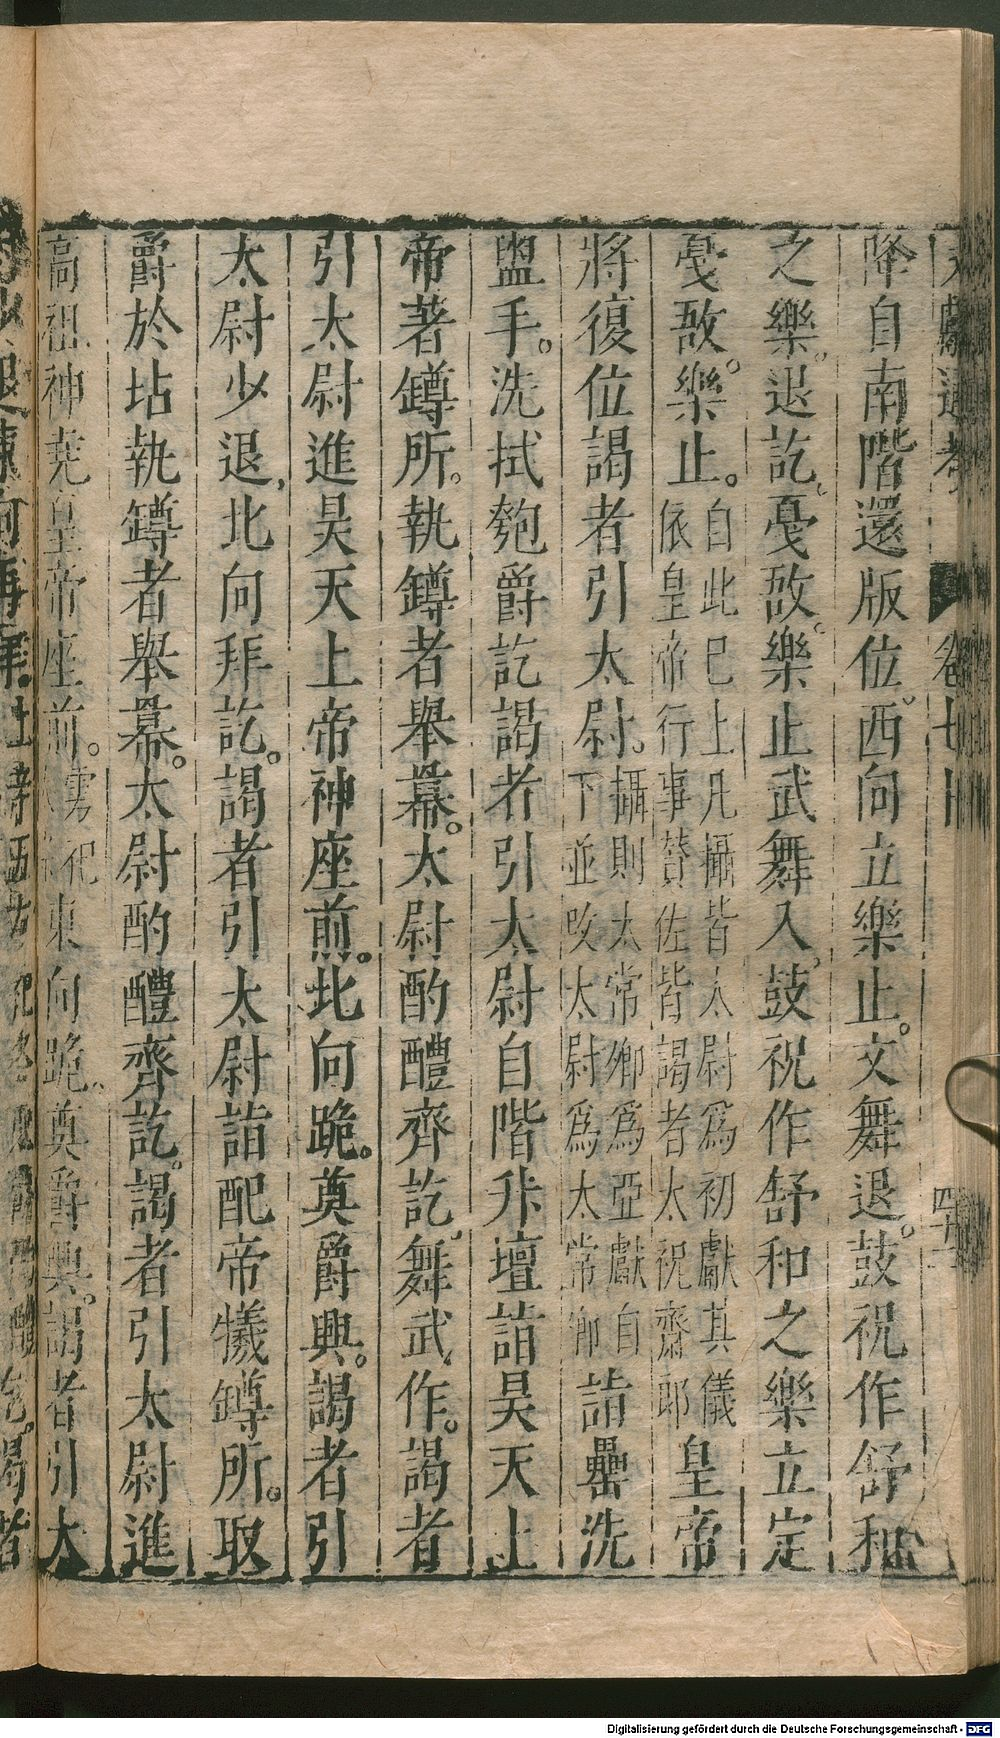 降自南階還版位。西向立樂止。文舞退。鼓祝作舒和
之樂。退訖。戞敔。樂止武舞入。鼓祝作舒和之樂立定
戞敔。樂止。自此已上凡攝皆太尉爲初獻其儀依皇帝行事賛佐皆謁者太祝齋郎皇帝
將復位謁者引太尉。攝則太常卿爲亞獻自下並改太尉爲太常卿詣罍洗
盥手。洗拭匏爵訖謁者引太尉自階升壇詣昊天上
帝著罇所。執罇者舉羃。太尉酌醴齊訖。舞武作。謁者
引太尉進昊天上帝神座煎。北向跪。奠爵興。謁者引
太尉少退,北向拜訖。謁者引太尉詣配帝犧罇所。取
爵於坫執罇者舉羃。太尉酌醴齊訖。謁者引太尉進
高祖神堯皇帝座前。雩祀東向跪。奠爵興。謁者引太
卷七十
四十五
Digitalisierung gefördert durch die Deutsche Forschungsgemeinschaft - DFG